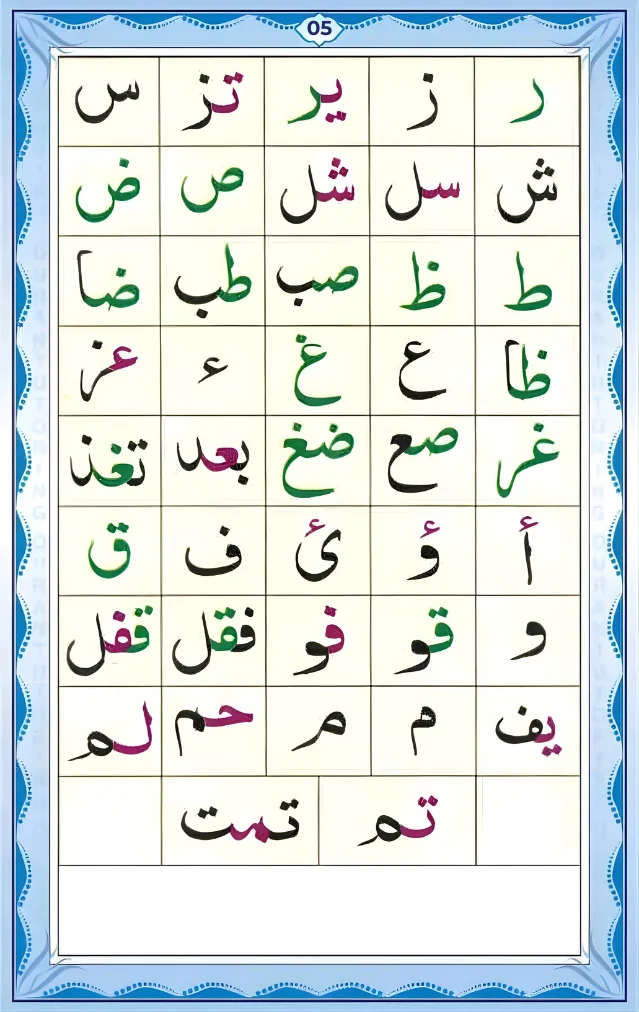 05
ر ز ير تز س
ش سل شل ص ض
ط ظ صب طب ضا
ظا ع غ ء عز
غر صع ضغ بعد تغذ
أ ؤ ئ ف ق
و قو فو فقل قفل
يف م م حم لم
تم تمت